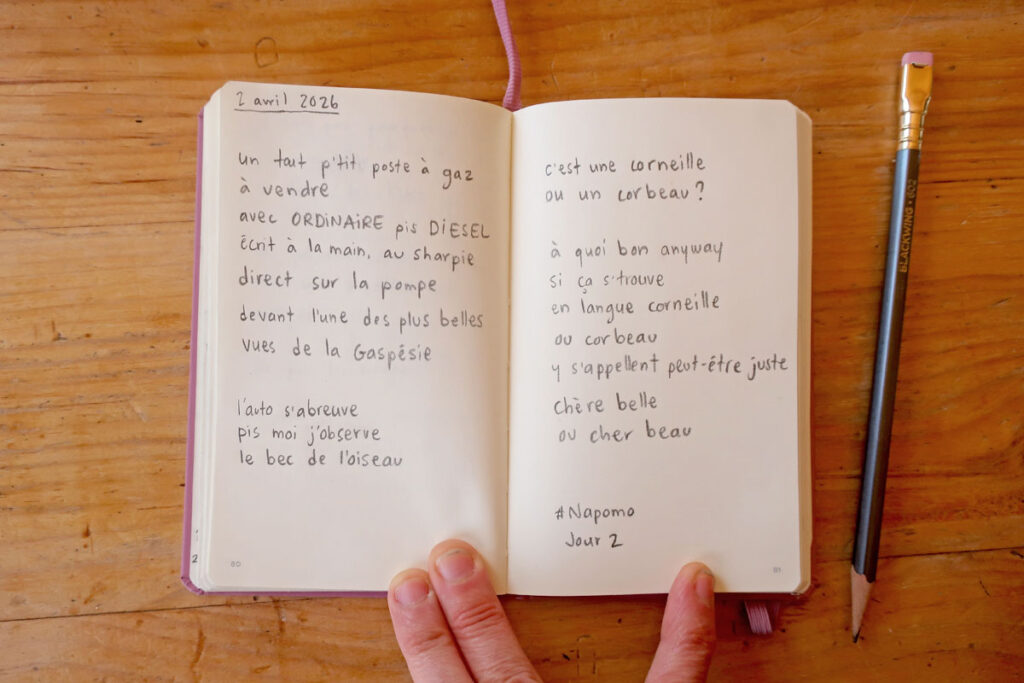 2 avril 2026
un tout p'tit poste à gaz
à vendre
avec ORDINAIRE pis DIESEL
écrit à la main, au sharpie
direct sur la pompe
devant l'une des plus belles
vues de la Gaspésie
l'auto s'abreuve
pis moi j'observe
le bec de l'oiseau
80
c'est une corneille
ou un corbeau ?
à quoi bon anyway
si ça s'trouve
en langue corneille
ou corbeau
y s'appellent peut-être juste
chère belle
ou cher beau
#Napomo
Jour 2
81
BLACKWING · 602